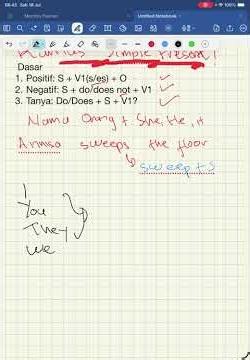 06.43 Sab 18 Jul
Monthly Planner
Untitled Notebook
Rumus Simple Present!
Dasar
1. Positif: S + V1(s/es) + O
2. Negatif: S + do/does not + V1
3. Tanya: Do/Does + S + V1?
Nama Orang + She, He, it
sweeps the floor
sweep + s
I
You
They
We